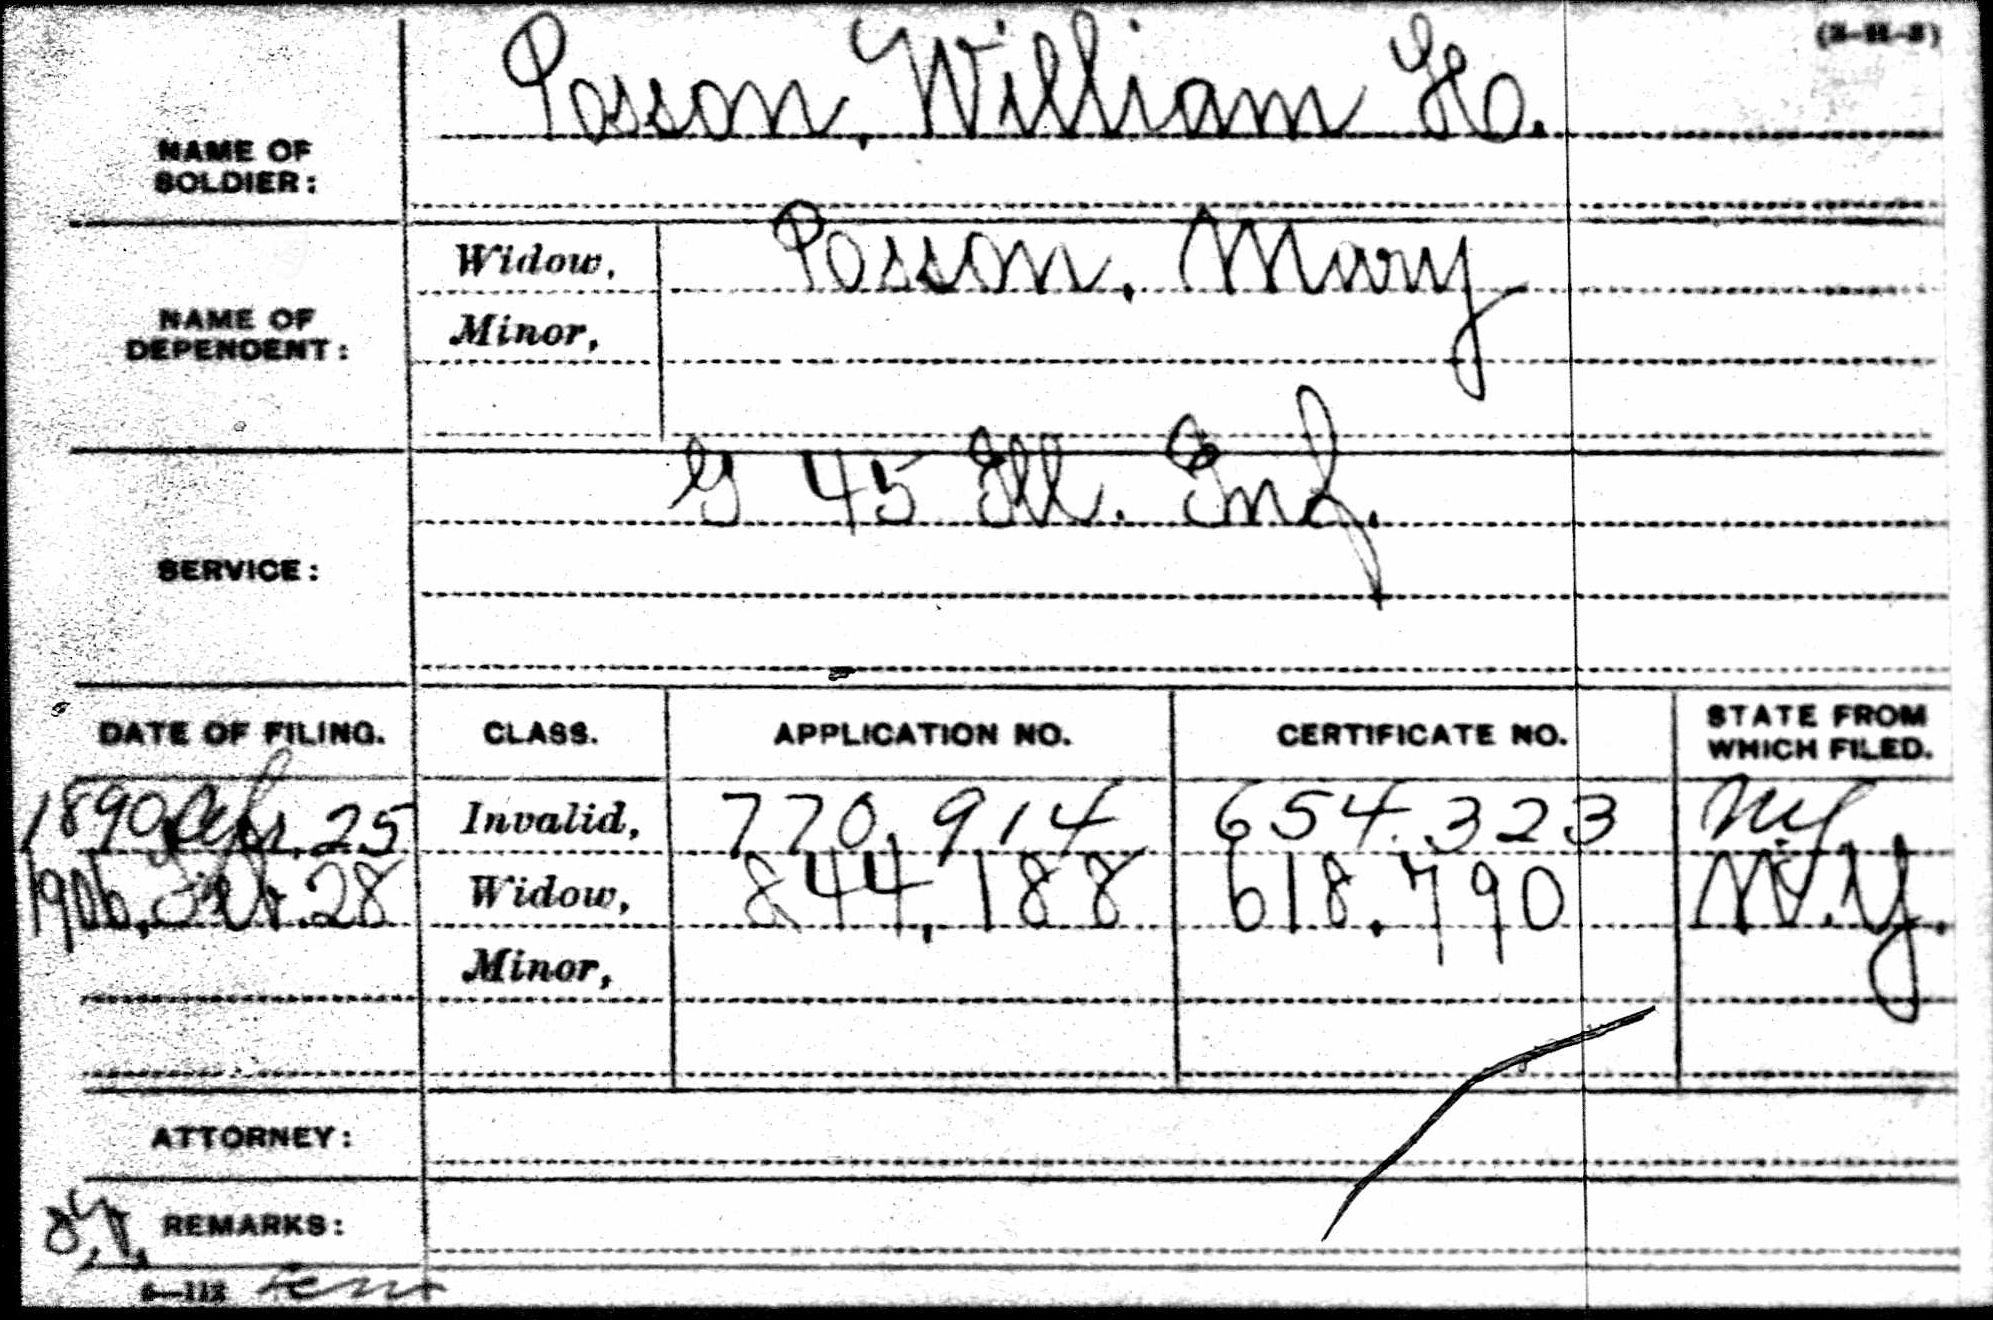 (3-H-3)
Posson, William H.
NAME OF
SOLDIER:
Widow, Posson, Mary
NAME OF
DEPENDENT:
Minor,
G 45 Ill. Inf.
SERVICE:
DATE OF FILING. CLASS. APPLICATION NO. CERTIFICATE NO. STATE FROM
WHICH FILED.
1890 Apr. 25 Invalid, 770,914 654.323 NY
1906, Febr. 28 Widow, 844,188 618.790 N.Y.
Minor,
ATTORNEY:
REMARKS: